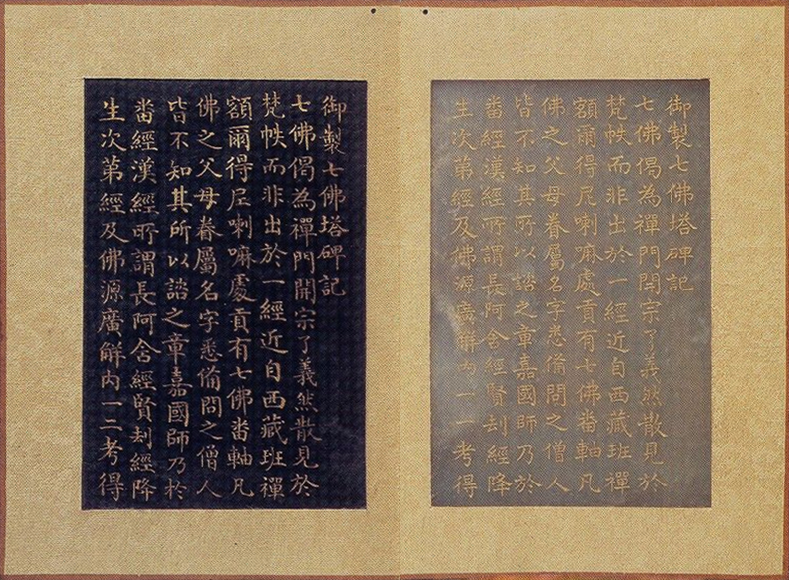 御製七佛塔碑記
七佛偈為禪門開宗了義然散見於
梵帙而非出於一經近自西藏班禪
額爾得尼喇嘛處貢有七佛畨軸凡
佛之父母眷屬名字悉備問之僧人
皆不知其所以諮之章嘉國師乃於
畨經漢經所謂長阿含經賢刼經降
生次第經及佛源廣解内一一考得
御製七佛塔碑記
七佛偈為禪門開宗了義然散見於
梵帙而非出於一經近自西藏班禪
額爾得尼喇嘛處貢有七佛畨軸凡
佛之父母眷屬名字悉備問之僧人
皆不知其所以諮之章嘉國師乃於
畨經漢經所謂長阿含經賢刼經降
生次第經及佛源廣解内一二考得